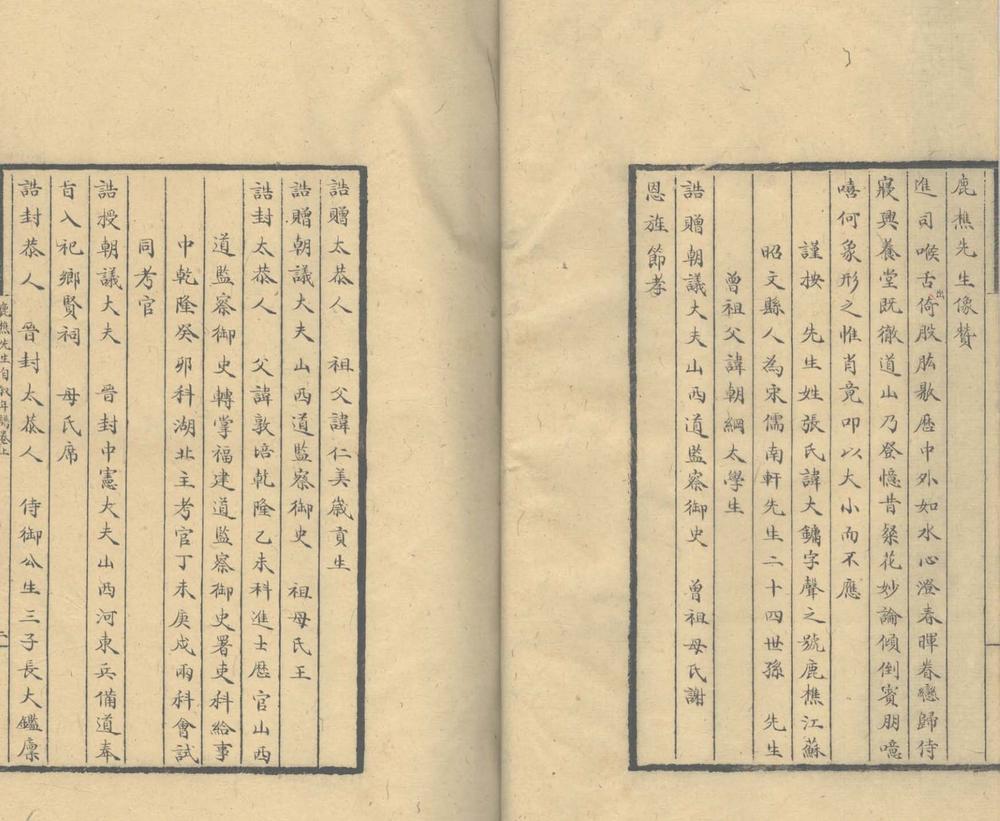 鹿樵先生像贊
進司喉舌出倚股肱歇歷中外如水心澄春暉眷戀歸侍
寢興養堂既徹道山乃登憶昔粲花妙論傾倒賓朋噫
嘻何象形之惟肖竟叩以大小而不應
謹按　先生姓張氏諱大鏞字聲之號鹿樵江蘇
昭文縣人為宋儒南軒先生二十四世孫　先生
曾祖父諱朝綱太學生
誥贈朝議大夫山西道監察御史　曾祖母氏謝
恩旌節孝
誥贈太恭人　祖父諱仁美歲貢生
誥贈朝議大夫山西道監察御史　祖母氏王
誥封太恭人　父諱敦培乾隆乙未科進士歷官山西
道監察御史轉掌福建道監察御史署吏科給事
中乾隆癸卯科湖北主考官丁未庚戌兩科會試
同考官
誥授朝議大夫　晉封中憲大夫山西河東兵備道奉
旨入祀鄉賢祠　母氏席
誥封恭人　晉封太恭人　侍御公生三子長大鑑廩
鹿樵先生自敘年譜卷上
二